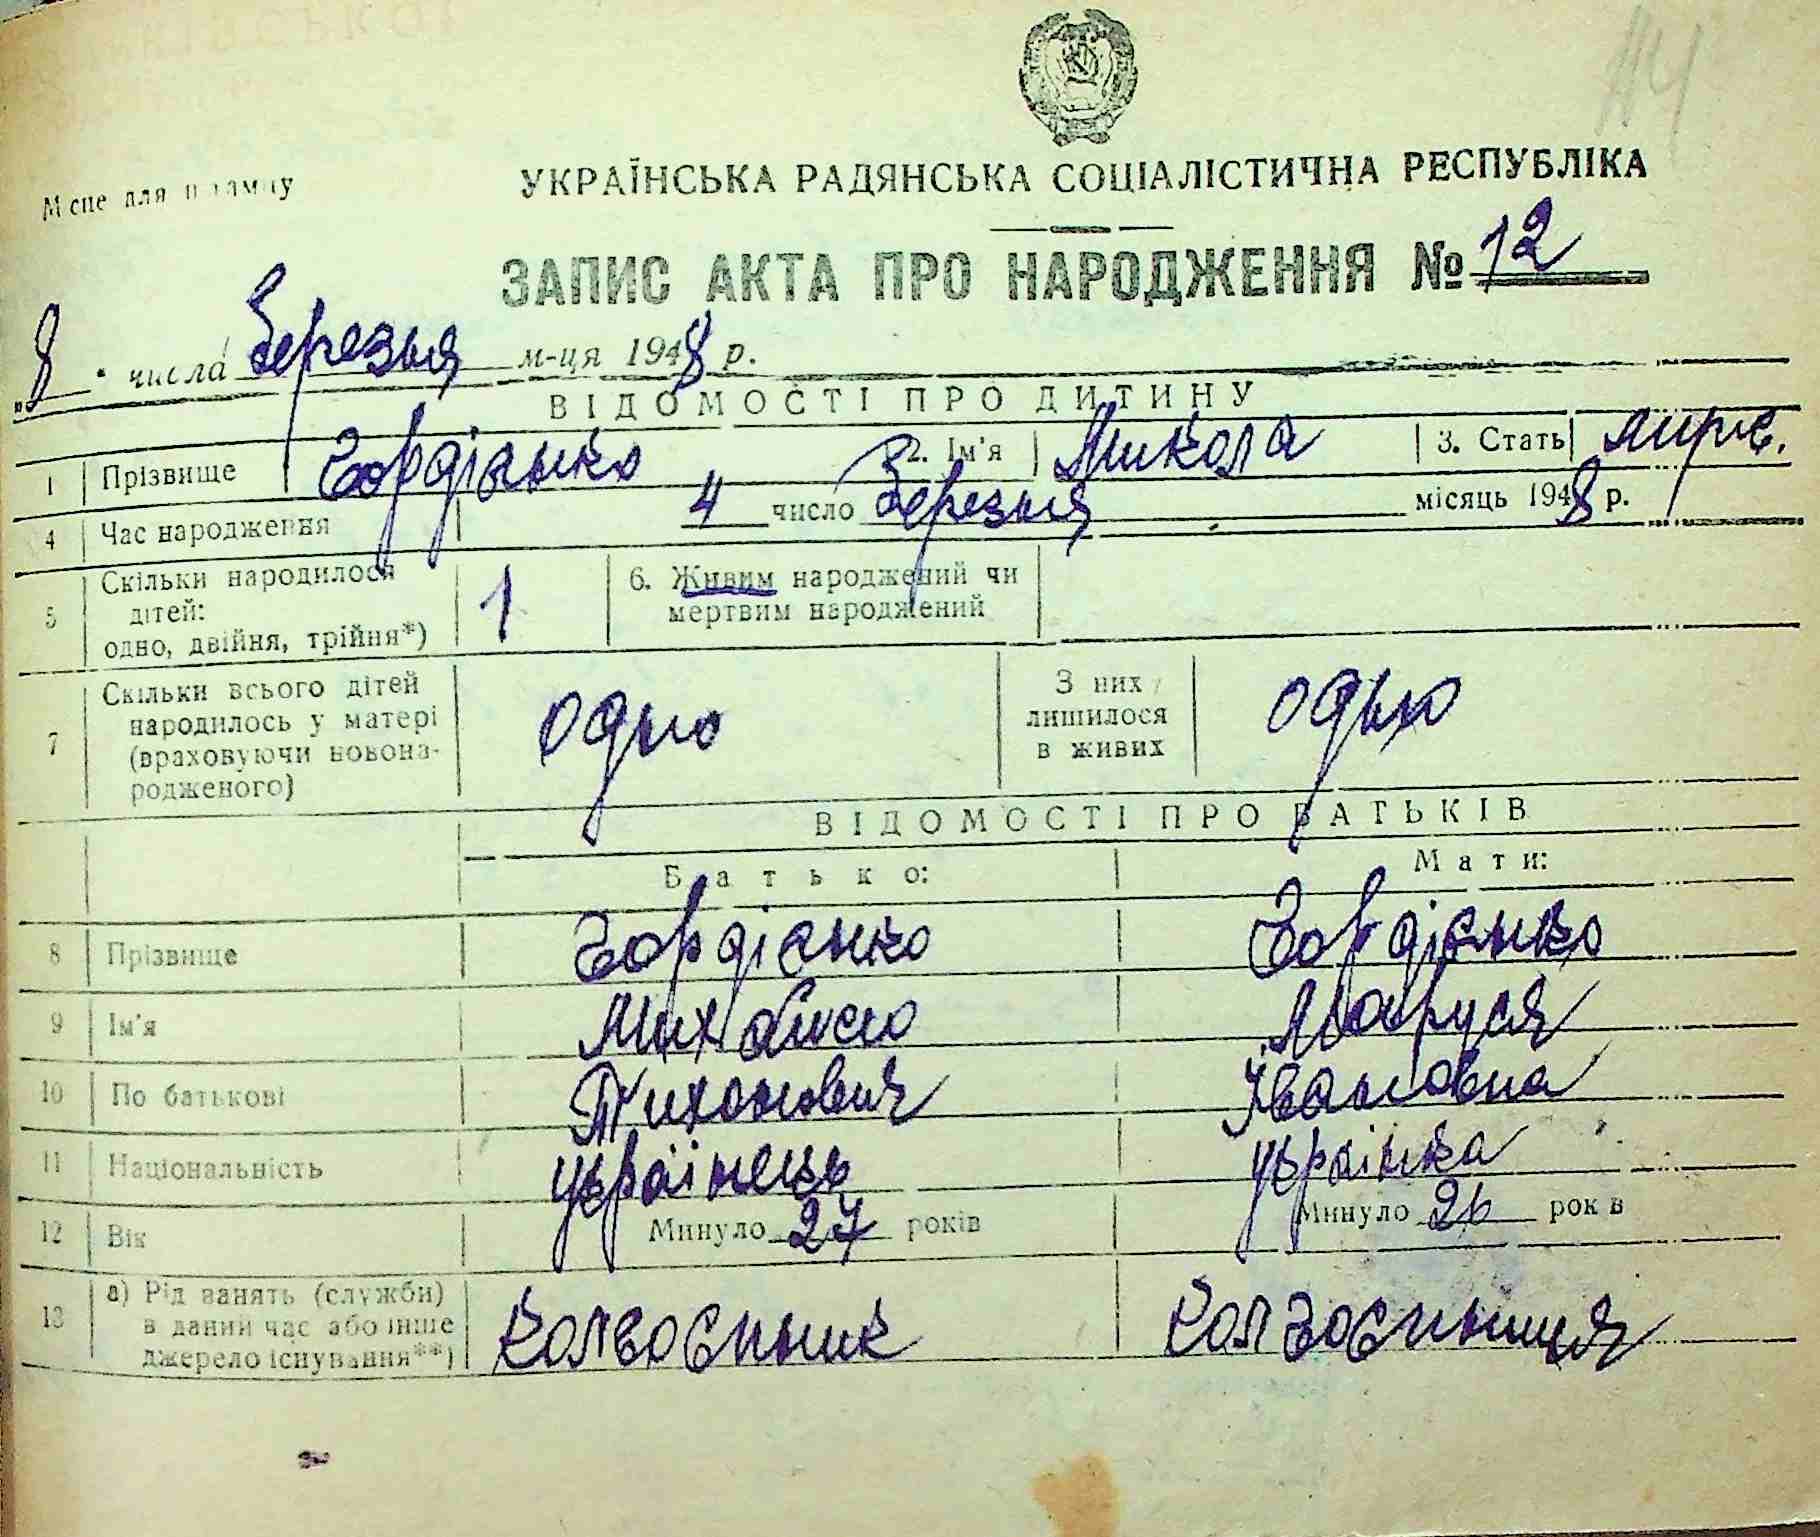 Місце для штампу
УКРАЇНСЬКА РАДЯНСЬКА СОЦІАЛІСТИЧНА РЕСПУБЛІКА
ЗАПИС АКТА ПРО НАРОДЖЕННЯ № 12
„8" числа березня м-ця 1948 р.
ВІДОМОСТІ ПРО ДИТИНУ
1 Прізвище Гордієнко 2. Ім'я Микола 3. Стать
4 Час народження 4 число березня місяць 1948 р.
5 Скільки народилося дітей: одно, двійня, трійня*) 1 6. Живим народжений чи мертвим народжений
7 Скільки всього дітей народилось у матері (враховуючи новонародженого) одно З них лишилося в живих одно
ВІДОМОСТІ ПРО БАТЬКІВ
Батько: Мати:
8 Прізвище Гордієнко Гордієнко
9 Ім'я Михайло Маруся
10 По батькові Тихонович Івановна
11 Національність українець українка
12 Вік Минуло 27 років Минуло 26 років
13 а) Рід занять (служби) в даний час або інше джерело існування**) колгоспник колгоспниця